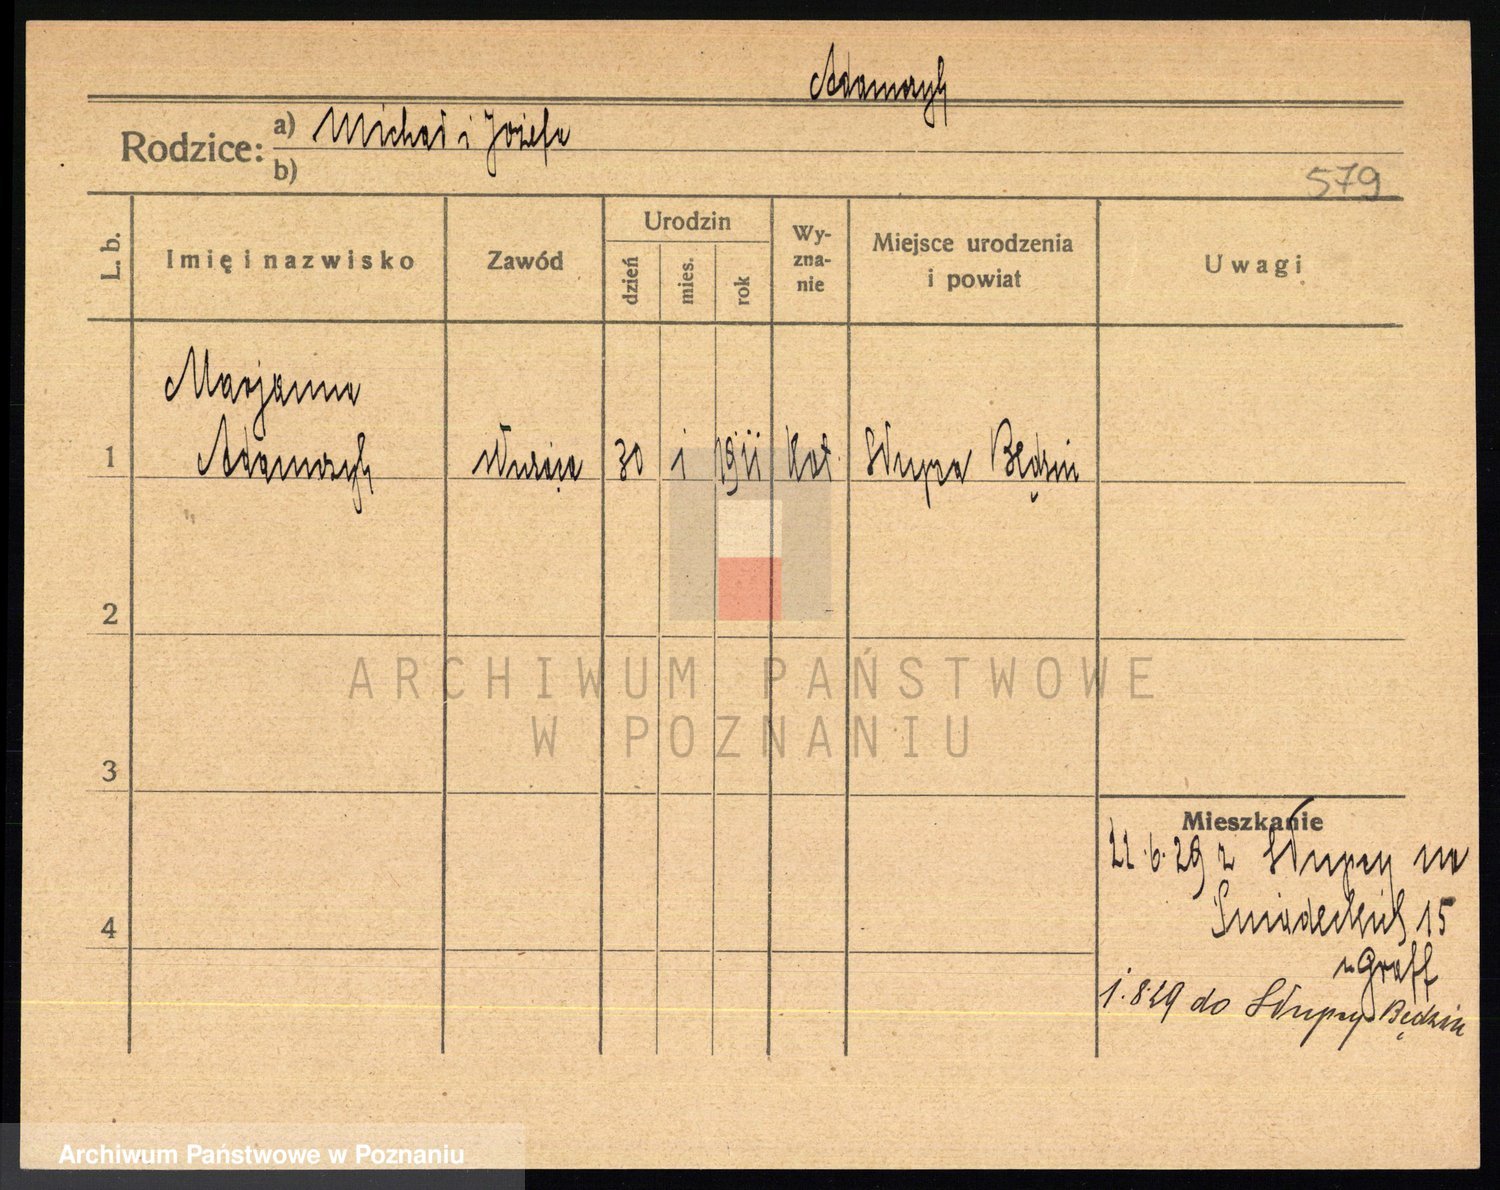 Adamczyk
Rodzice: a) Michał i Józefa
b)
579
L. b.
Imię i nazwisko
Zawód
Urodzin
dzień
mies.
rok
Wy-
zna-
nie
Miejsce urodzenia
i powiat
Uwagi
Marjanna
1 Adamczyk służąca 30 i 19ii kat. Słupca Będzin
2
3
4
Mieszkanie
22.6.29 z Słupcy na
Śniadeckich 15
Graff
1.8.29 do Słupcy Będzin
ARCHIWUM PAŃSTWOWE
W POZNANIU
Archiwum Państwowe w Poznaniu